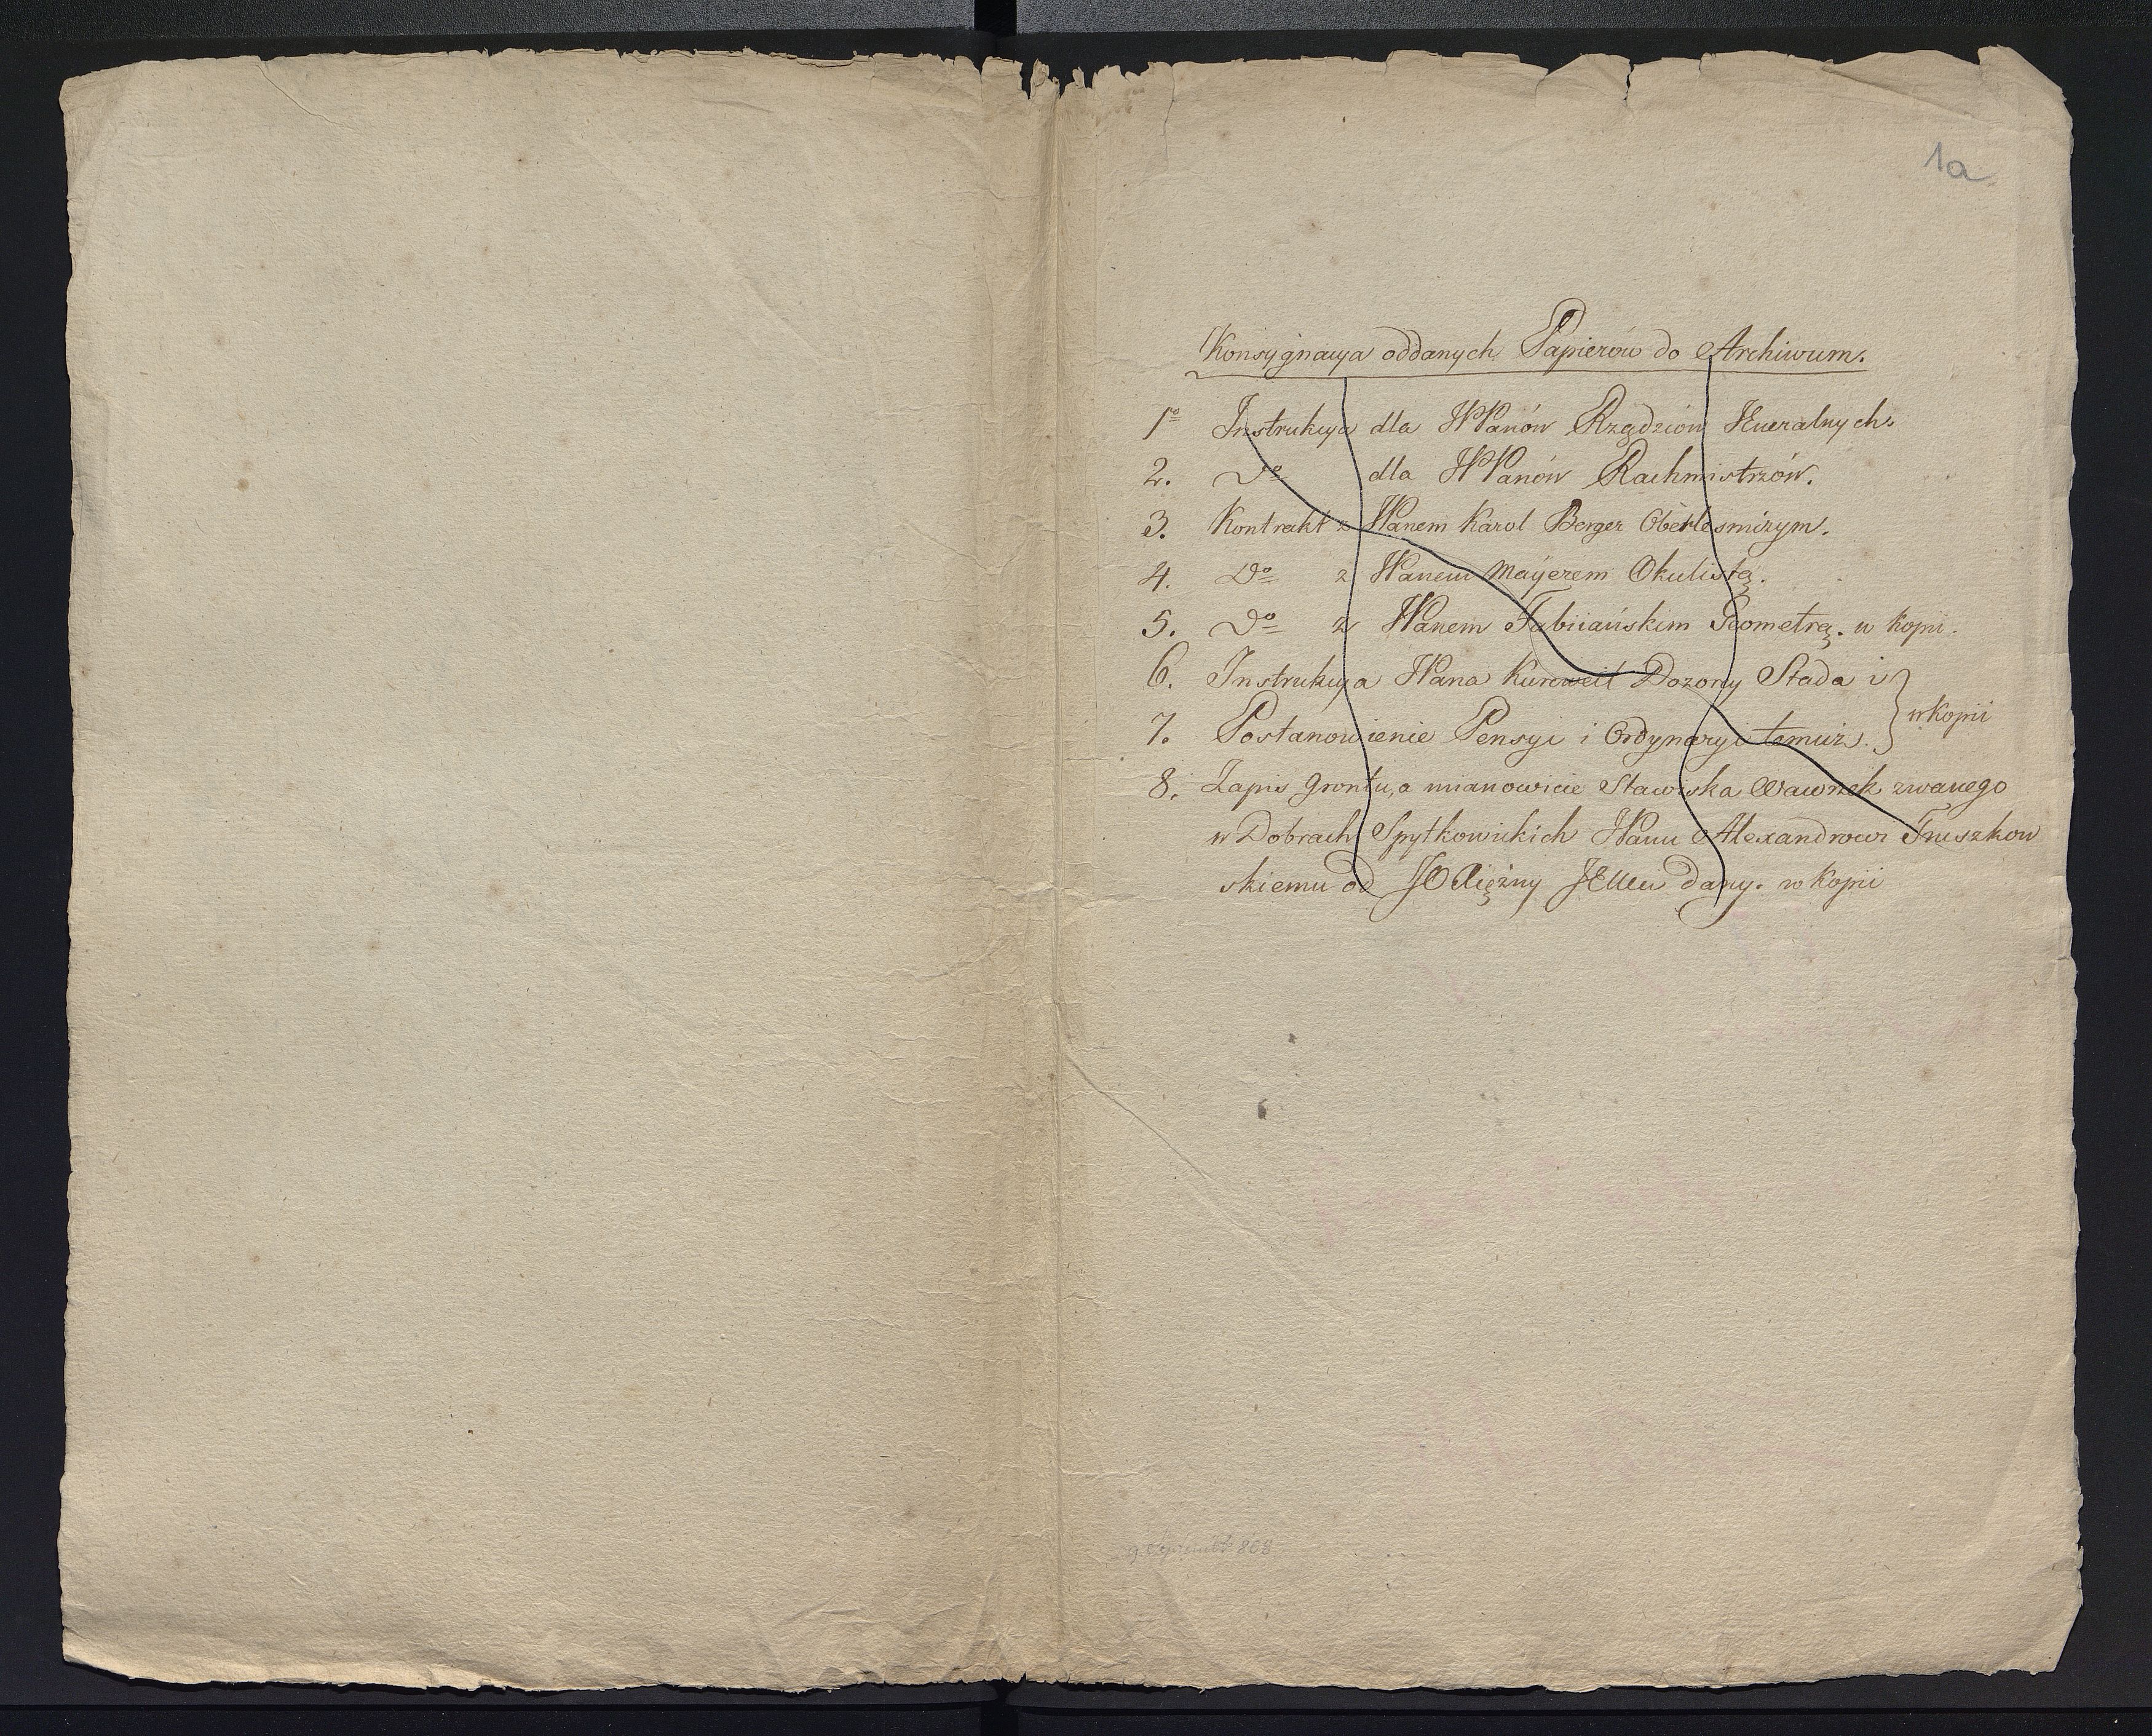 1a
Konsygnacya oddanych Papierów do Archiwum.
1º Instrukcya dla WPanów Rządzców Kueralnych.
2. Dº dla WPanów Rachmistrzów.
3. Kontrakt z WPanem Karol Berger Oberlesmizym.
4. Dº z WPanem Mayerem Okulistą.
5. Dº z WPanem Fabiiańskim Geometrą. w kopii.
6. Instrukcya WPana Kurcweil Dozorcy Stada i
7. Postanowienie Pensyi i Ordynaryi temuż. } w Kopii
8. Zapis Grontu, a mianowicie Stawiska Wawrzek zwanego
w Dobrach Spytkowickich WPanu Alexandrowi Truszkow
skiemu od JO Xiężny JEMci dany. w Kopii
808